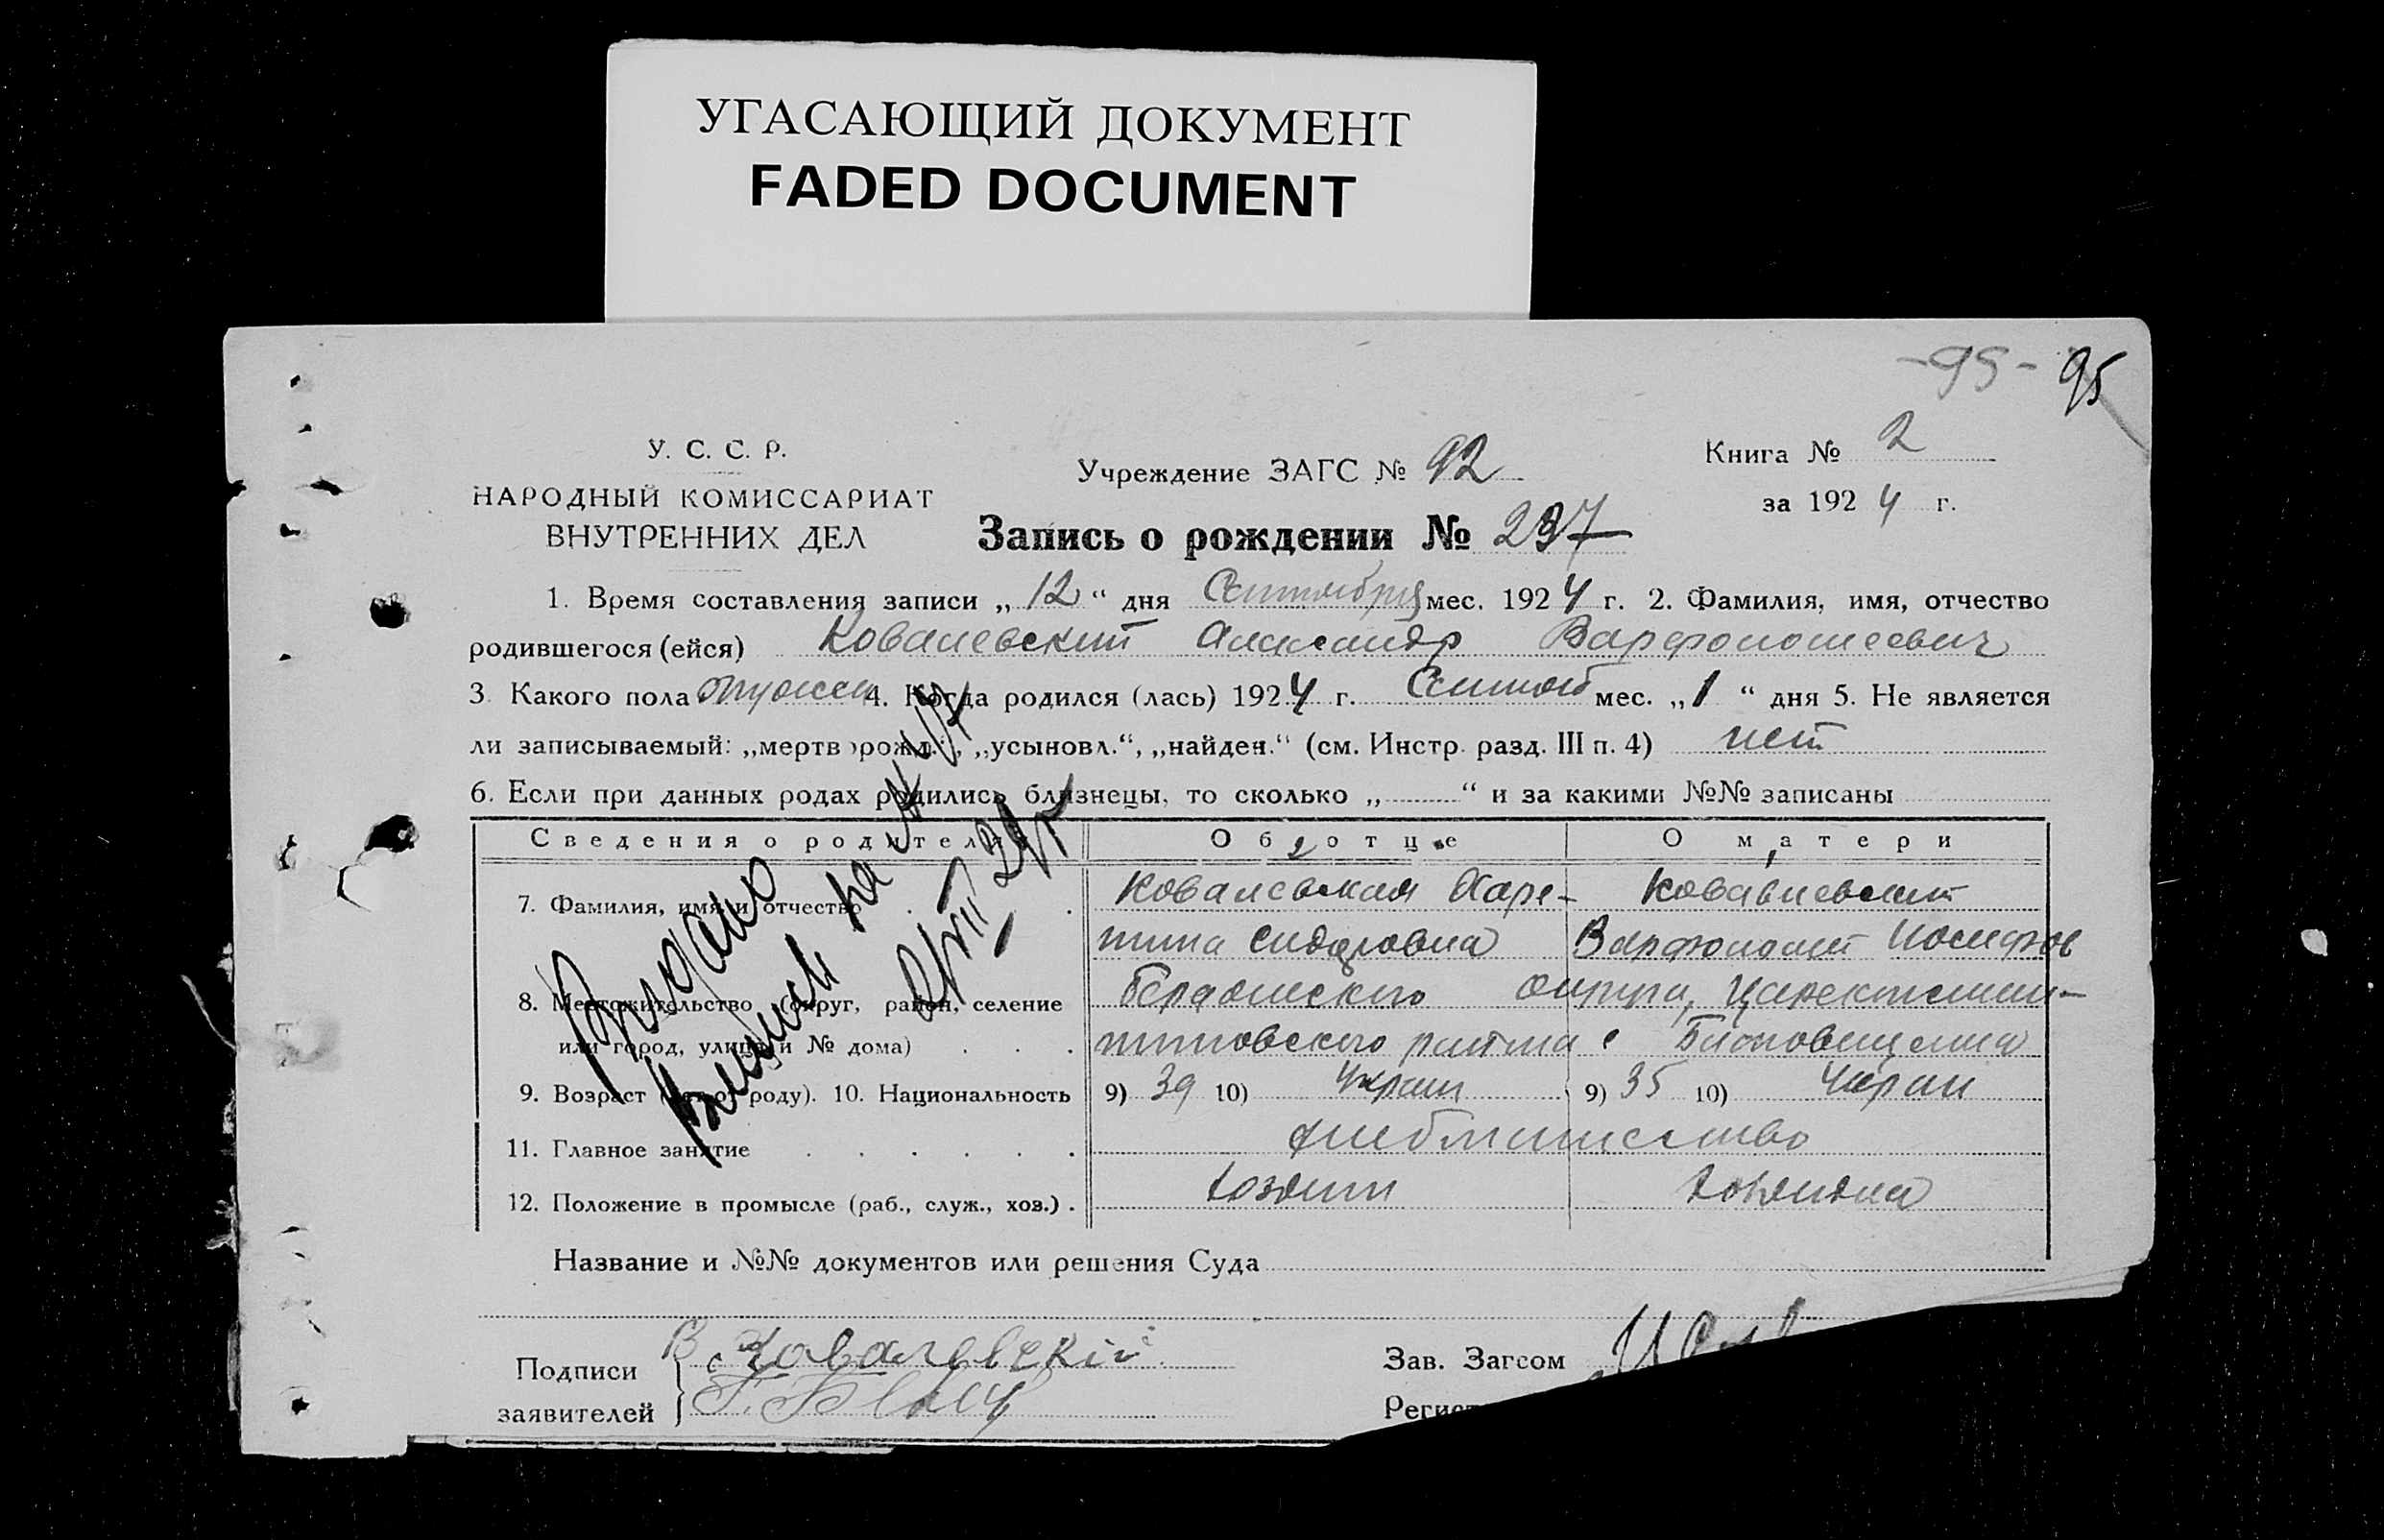 УГАСАЮЩИЙ ДОКУМЕНТ
FADED DOCUMENT
-95- 95
У. С. С. Р.
НАРОДНЫЙ КОМИССАРИАТ
ВНУТРЕННИХ ДЕЛ
Учреждение ЗАГС № 92
Книга № 2
за 1924 г.
Запись о рождении № 237
1. Время составления записи „12“ дня Сентября мес. 1924 г. 2. Фамилия, имя, отчество
родившегося (ейся) Ковалевский Александр Варфоломеевич
3. Какого пола мужск 4. Когда родился (лась) 1924 г. Сентяб мес. „1“ дня 5. Не является
ли записываемый: „мертворожд.“, „усыновл.“, „найден.“ (см. Инстр. разд. III п. 4) нет
6. Если при данных родах родились близнецы, то сколько „ “ и за какими №№ записаны
Сведения о родителях Об отце О матери
7. Фамилия, имя и отчество Ковалевская Харе- Ковалевский
тина Сидоровна Варфоломей Иосифов
8. Местожительство (округ, район, селение Бердянского округа, Цареконстан-
или город, улица и № дома) тиновского района с Благовещенка
9. Возраст (лет от роду). 10. Национальность 9) 39 10) Украин 9) 35 10) Украин
11. Главное занятие хлебопашество
12. Положение в промысле (раб., служ., хоз.) хозяин хозяйка
Выдано
Название и №№ документов или решения Суда
Подписи В Ковалевскій
заявителей
Зав. Загсом